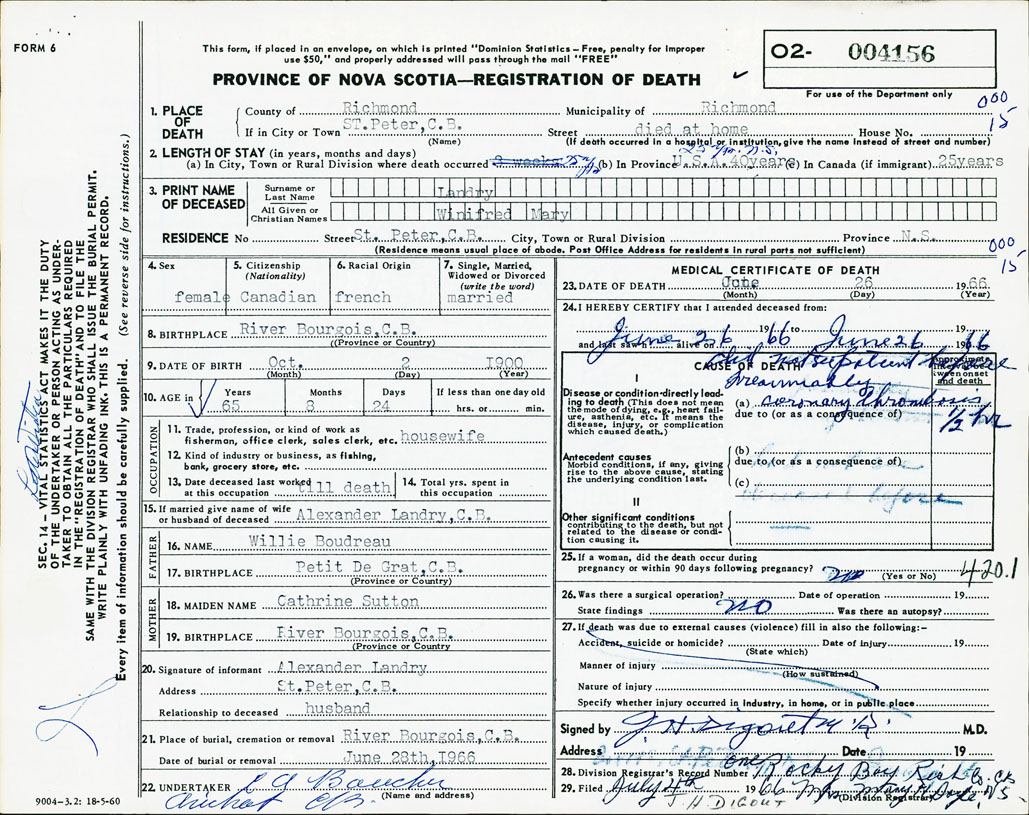 FORM 6
This form, if placed in an envelope, on which is printed "Dominion Statistics – Free, penalty for improper
use $50," and properly addressed will pass through the mail "FREE"
PROVINCE OF NOVA SCOTIA—REGISTRATION OF DEATH
O2- 004156
For use of the Department only
000
15
1. PLACE OF DEATH
County of Richmond Municipality of Richmond
If in City or Town ST.Peter,C.B. Street died at home House No.
(Name) (If death occurred in a hospital or institution, give the name instead of street and number)
2. LENGTH OF STAY (in years, months and days)
(a) In City, Town or Rural Division where death occurred (b) In Province U.S.A. 40years (c) In Canada (if immigrant) 25years
3. PRINT NAME OF DECEASED
Surname or Last Name Landry
All Given or Christian Names Winifred Mary
RESIDENCE No Street St. Peter,C.B. City, Town or Rural Division Province N.S.
(Residence means usual place of abode. Post Office Address for residents in rural parts not sufficient)
000
15
4. Sex female
5. Citizenship (Nationality) Canadian
6. Racial Origin french
7. Single, Married, Widowed or Divorced (write the word) married
8. BIRTHPLACE River Bourgois,C.B.
(Province or Country)
9. DATE OF BIRTH Oct. 2 1900
(Month) (Day) (Year)
10. AGE in Years Months Days If less than one day old
65 8 24 hrs. or min.
OCCUPATION
11. Trade, profession, or kind of work as fisherman, office clerk, sales clerk, etc. housewife
12. Kind of industry or business, as fishing, bank, grocery store, etc.
13. Date deceased last worked at this occupation till death
14. Total yrs. spent in this occupation
15. If married give name of wife or husband of deceased Alexander Landry,C.B.
FATHER
16. NAME Willie Boudreau
17. BIRTHPLACE Petit De Grat,C.B.
(Province or Country)
MOTHER
18. MAIDEN NAME Cathrine Sutton
19. BIRTHPLACE River Bourgois,C.B.
(Province or Country)
20. Signature of informant Alexander Landry
Address St.Peter,C.B.
Relationship to deceased husband
21. Place of burial, cremation or removal River Bourgois,C.B.
Date of burial or removal June 28th,1966
22. UNDERTAKER
(Name and address)
9004-3.2: 18-5-60
MEDICAL CERTIFICATE OF DEATH
23. DATE OF DEATH June 26 1966
(Month) (Day) (Year)
24. I HEREBY CERTIFY that I attended deceased from:
June 26 1966 to June 26 1966
and last saw alive on 19
CAUSE OF DEATH
Approximate interval between onset and death
I
Disease or condition directly leading to death (This does not mean the mode of dying, e.g., heart failure, asthenia, etc. It means the disease, injury, or complication which caused death.)
Presumably
(a) coronary thrombosis 1/2 hr
due to (or as a consequence of)
Antecedent causes
Morbid conditions, if any, giving rise to the above cause, stating the underlying condition last.
(b)
due to (or as a consequence of)
(c)
II
Other significant conditions
contributing to the death, but not related to the disease or condition causing it.
25. If a woman, did the death occur during pregnancy or within 90 days following pregnancy? no (Yes or No)
420.1
26. Was there a surgical operation? Date of operation 19
State findings no Was there an autopsy?
27. If death was due to external causes (violence) fill in also the following:-
Accident, suicide or homicide? Date of injury 19
(State which)
Manner of injury
(How sustained)
Nature of injury
Specify whether injury occurred in industry, in home, or in public place
Signed by M.D.
Address Date 19
28. Division Registrar's Record Number
29. Filed July 4th 1966
(Division Registrar)
J H DIGOUT
SEC. 14 – VITAL STATISTICS ACT MAKES IT THE DUTY
OF THE UNDERTAKER OR PERSON ACTING AS UNDERTAKER
TO OBTAIN ALL THE PARTICULARS REQUIRED
IN THE "REGISTRATION OF DEATH" AND TO FILE THE
SAME WITH THE DIVISION REGISTRAR WHO SHALL ISSUE THE BURIAL PERMIT.
WRITE PLAINLY WITH UNFADING INK. THIS IS A PERMANENT RECORD.
Every item of information should be carefully supplied. (See reverse side for instructions.)